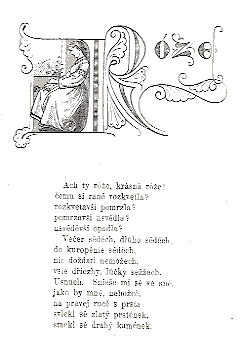 Róže
Ach ty róže, krásná róže!
čemu si raně rozkvetla?
rozkvetavši pomrzla?
pomrzavši usvědla?
usvěděvši opadla?
Večer sěděch, dlúho sěděch,
do kuropěnie sěděch,
nic doždati nemožech,
vsie dřiezhy, lúčky sežžech.
Usnuch. Snieše mi sě ve sně,
jako by mně, nebožcě,
na pravej rucě s prsta
svlekl sě zlatý prstének,
smekl sě drahý kamének.